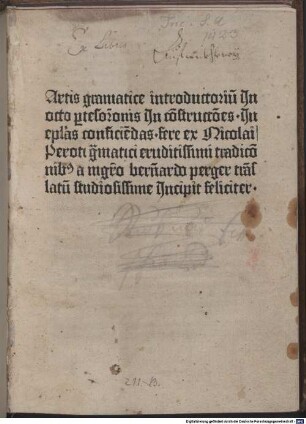 Ex Libris
Inc. s. a.
Artis gramatice introductoriū In
octo ꝑtes orōnis In cōstructōes · In
epl̄as conficiēdas · fere ex Nicolai
Peroti g̃matici eruditissimi tradicō
nibꝰ a mgr̄o bern̄ardo perger trās
latū studiosissime Incipit feliciter ·
Digitalisierung gefördert durch die Deutsche Forschungsgemeinschaft